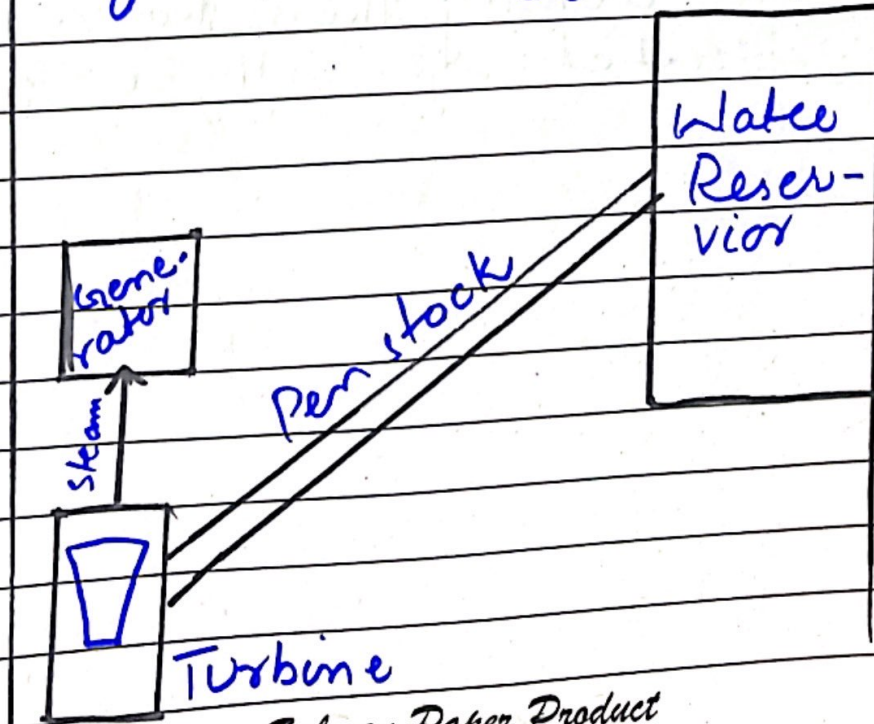 Water
Reser-
vior
Gene-
rator
Pen stock
Steam
Turbine
Paper Product